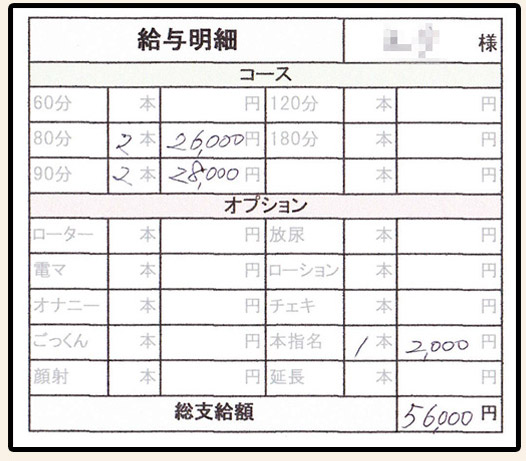 給与明細 様
コース
60分 本 円 120分 本 円
80分 2 本 26,000円 180分 本 円
90分 2 本 28,000 円 本 円
オプション
ローター 本 円 放尿 本 円
電マ 本 円 ローション 本 円
オナニー 本 円 チェキ 本 円
ごっくん 本 円 本指名 1 本 2,000 円
顔射 本 円 延長 本 円
総支給額 56,000 円